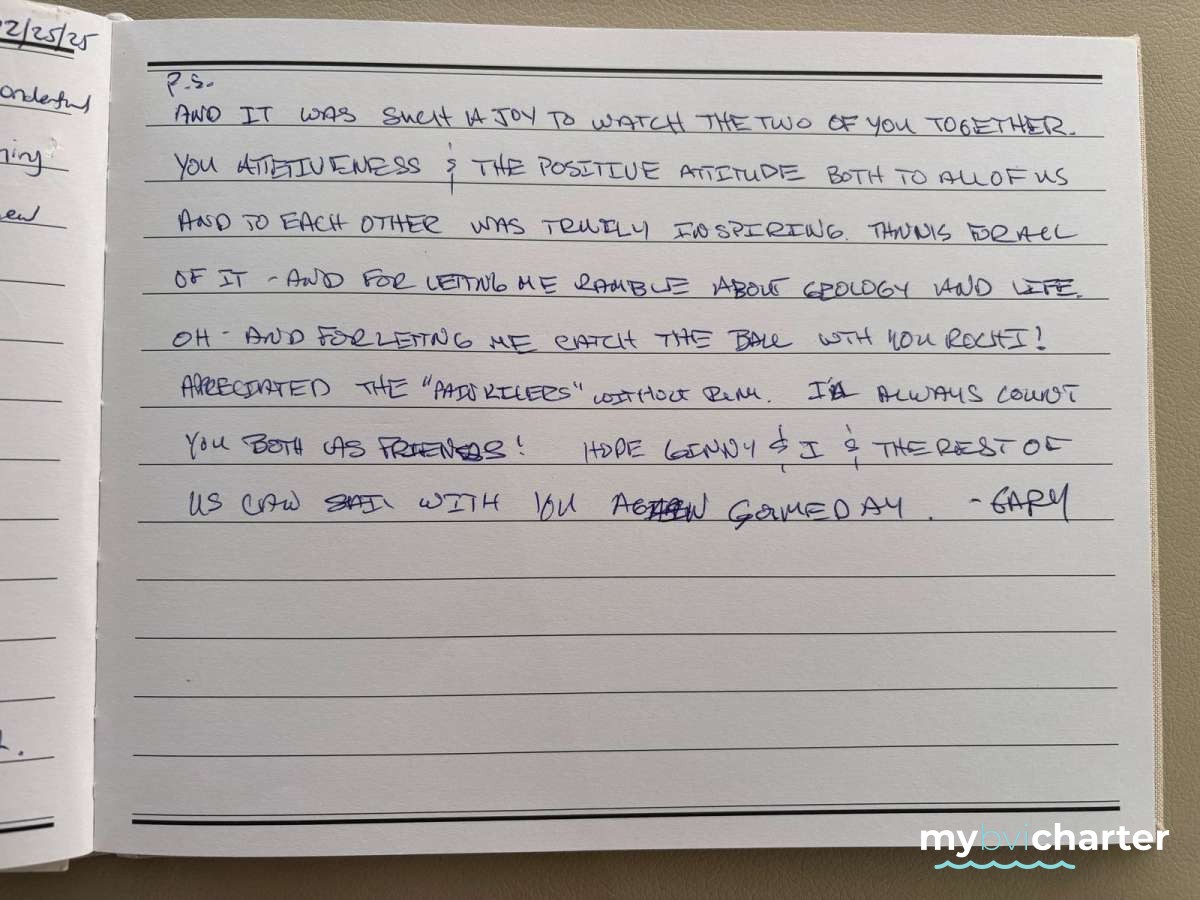 2/25/25
onderful
ning?
ew
P.S.
AND IT WAS SUCH A JOY TO WATCH THE TWO OF YOU TOGETHER.
YOU ATTETIVENESS & THE POSITIVE ATTITUDE BOTH TO ALL OF US
AND TO EACH OTHER WAS TRULY INSPIRING. THANKS FOR ALL
OF IT - AND FOR LETTING ME RAMBLE ABOUT GEOLOGY AND LIFE.
OH - AND FOR LETTING ME CATCH THE BALL WITH YOU ROCHI!
APPRECIATED THE "PAINKILLERS" WITHOUT RUM. I'LL ALWAYS COUNT
YOU BOTH AS FRIENDS! HOPE GINNY & I & THE REST OF
US CAN SAIL WITH YOU AGAIN SOMEDAY. - GARY
mybvicharter